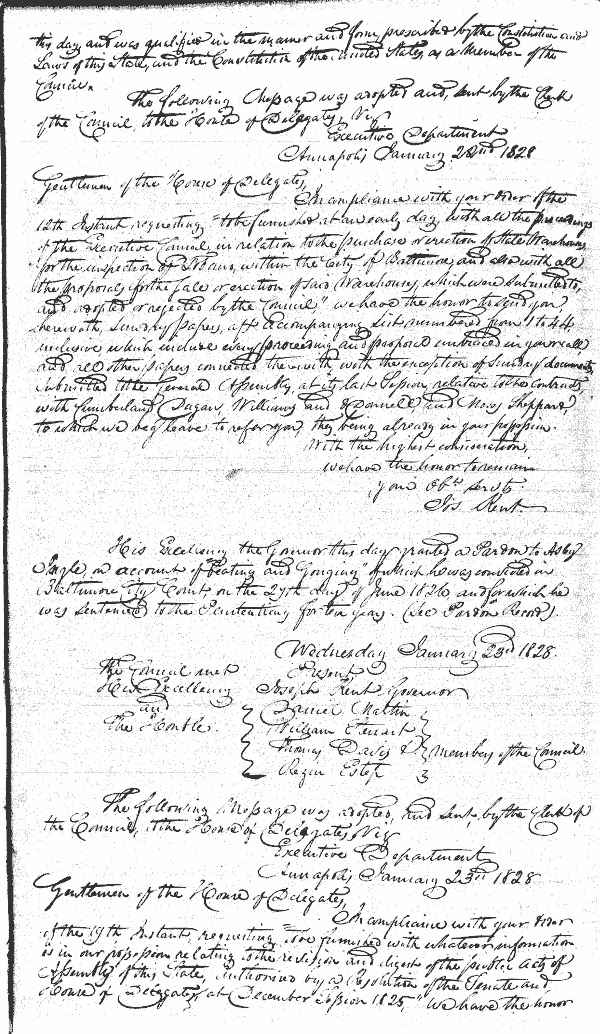 this day and was qualified in the manner and form, prescribed by the Constitution and
Laws of this State, and the Constitution of the United States, as a member of the
Council.
The following Message was adopted and, sent by the Clerk
of the Council, to the House of Delegates, Viz
Executive Department
Annapolis January 22nd 1828
Gentlemen of the House of Delegates,
In compliance with your order of the
12th Instant requesting "to be furnished at an early day, with all the proceedings
of the Executive Council, in relation to the purchase or erection of State Warehouses,
for the inspection of Tobacco, within the City of Baltimore, and also with all
the proposals for the sale or erection of said Warehouse, which were submitted to,
and adopted or rejected by the Council," we have the honor to send you
herewith, Sundry papers, as accompanying List numbered from 1 to 44
inclusive which include every proceeding and proposal embraced in your call
and all other papers connected therewith, with the exception of Sundry documents
submitted to the General Assembly, at its last Session, relative to the contracts
with Cumberland Dugan, Williams and and Moses Sheppard
to which we beg leave to refer you, they being already in your possession.
With the highest consideration,
we have the honor to remain
your Obt. servts.
Jos. Kent.
His Excellency the Governor this day granted a Pardon to Asbury
on account of beating and Gouging of which he was convicted in
Baltimore City Court on the 27th day of June 1826, and for which he
was sentenced to the Penitentiary for ten years. (See Pardon Record).
Wednesday January 23rd 1828
The Council met
Present
His Excellency
Joseph Kent Governor
and
The Honble.
Daniel Martin
William Stewart
Thomas Davis &
Rezin Estep
members of the Council.
The following Message was adopted, and sent, by the Clerk of
the Council, to the House of Delegates, Viz
Executive Department
Annapolis January 23rd 1828
Gentlemen of the House of Delegates,
In compliance with your order
of the 19th Instant, requesting "To be furnished with whatever information
is in our possession relating to the revision and digest of the public acts of
Assembly of this State, authorised by a Resolution of the Senate and
House of Delegates, at December Session 1825," We have the honor